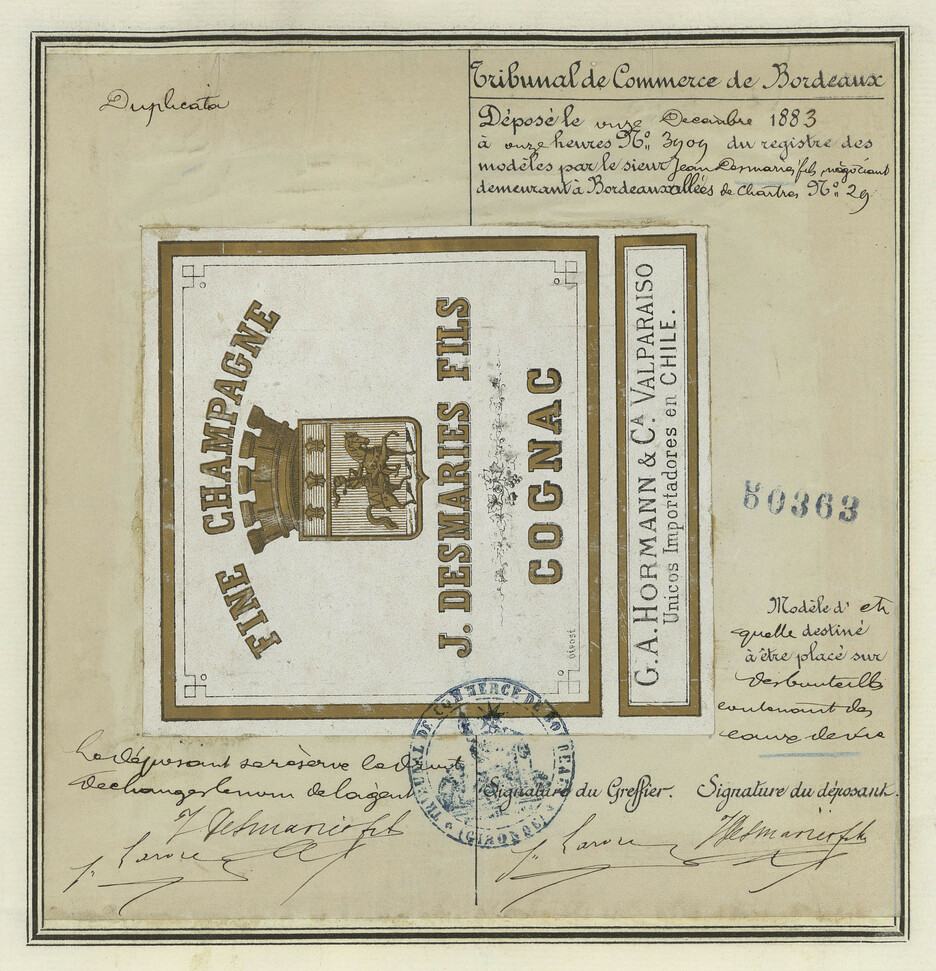 Duplicata
Tribunal de Commerce de Bordeaux
Déposé le onze Décembre 1883
à onze heures Nº 3909 du registre des
modèles par le sieur Jean Desmaries fils, négociant
demeurant à Bordeaux allées de Chartres Nº 29
FINE CHAMPAGNE
J. DESMARIES FILS
COGNAC
G. A. HORMANN & Cª VALPARAISO
Unicos Importadores en CHILE.
50363
Modèle d' éti
quette destiné
à être placé sur
des bouteilles
contenant des
eaux de vie
Le déposant se réserve le droit
de changer le nom de l'agent
TRIBUNAL DE COMMERCE DE BORDEAUX
(GIRONDE)
Signature du Greffier. Signature du déposant.
J Desmaries fils
J Desmaries fils